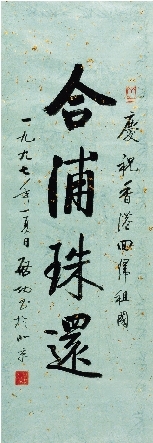 慶祝香港回歸祖國
合浦珠還
一九九七年夏日啟功書於北京